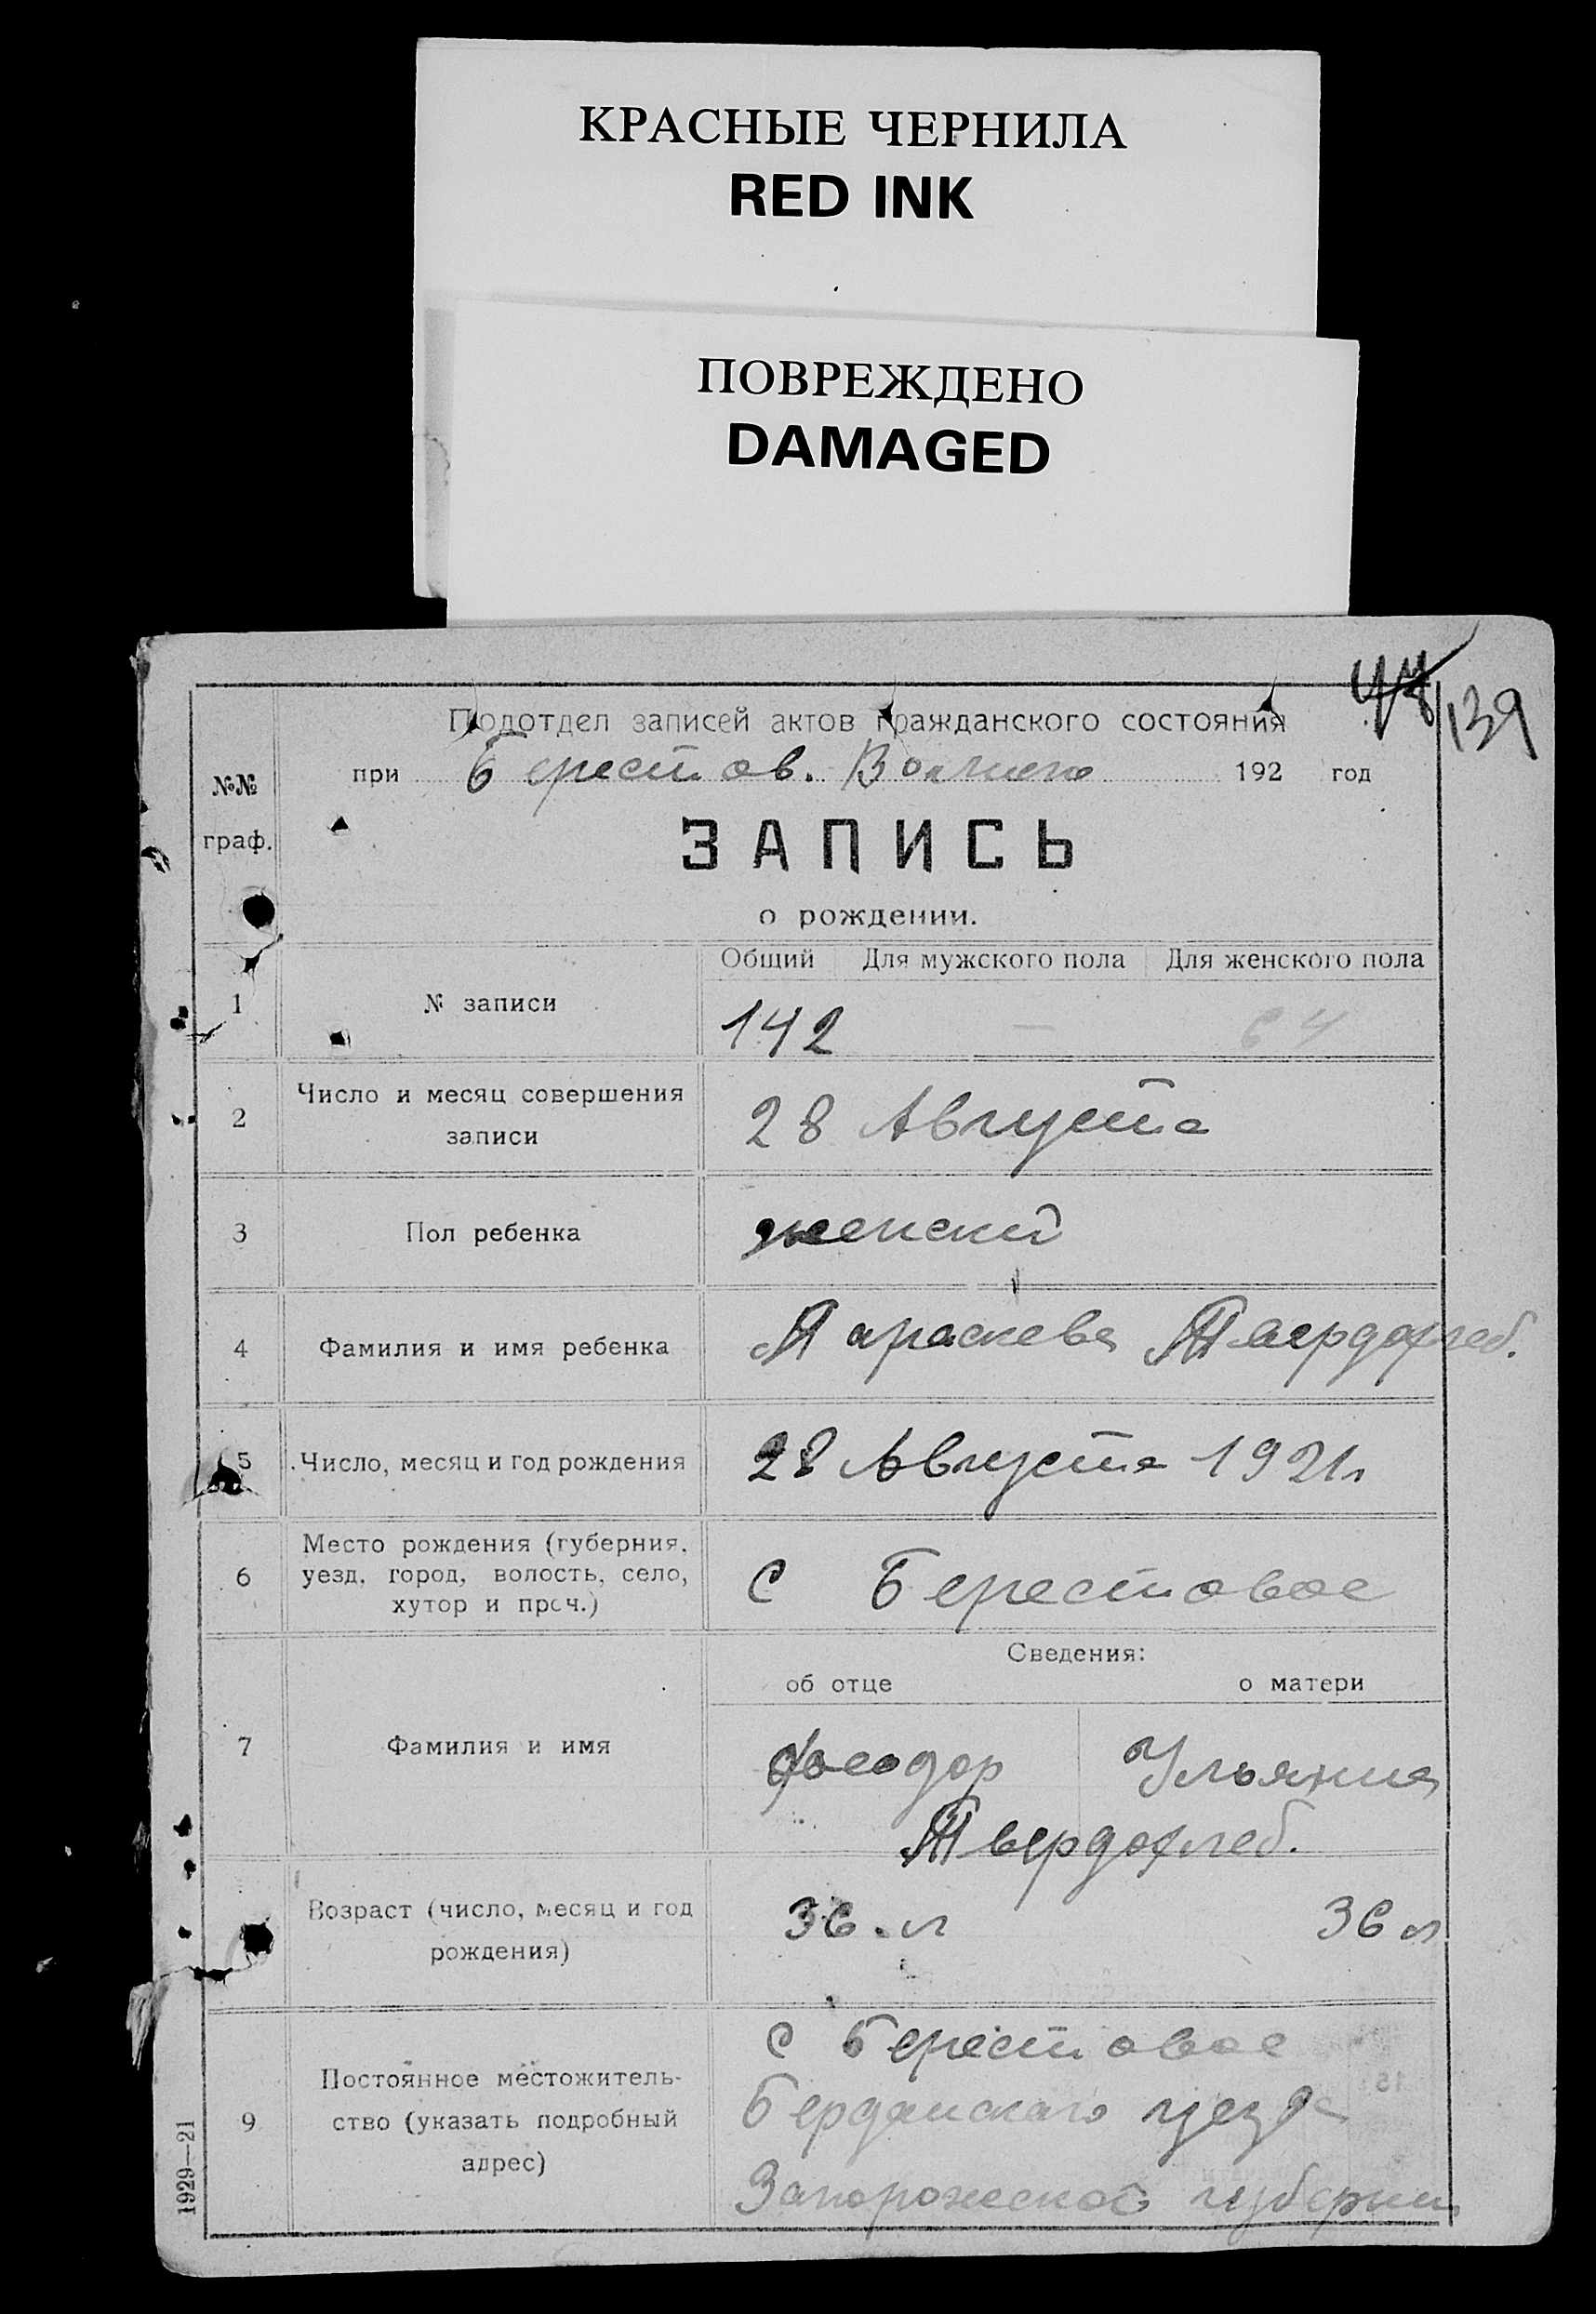 КРАСНЫЕ ЧЕРНИЛА
RED INK
ПОВРЕЖДЕНО
DAMAGED
139
Подотдел записей актов гражданского состояния
при Берестов. 192 год
№№
граф.
ЗАПИСЬ
о рождении.
Общий Для мужского пола Для женского пола
1 № записи 142 — 64
2 Число и месяц совершения
записи
28 Августа
3 Пол ребенка женский
4 Фамилия и имя ребенка Параскева Твердохлеб.
5 Число, месяц и год рождения 28 Августа 1921 г
6 Место рождения (губерния,
уезд, город, волость, село,
хутор и проч.)
С Берестовое
Сведения:
об отце о матери
7 Фамилия и имя Феодор Ульяния
Твердохлеб.
Возраст (число, месяц и год
рождения)
36.л 36 л
9 Постоянное местожитель-
ство (указать подробный
адрес)
С Берестовое
Бердянскаго уезда
Запорожской губернии
1929—21